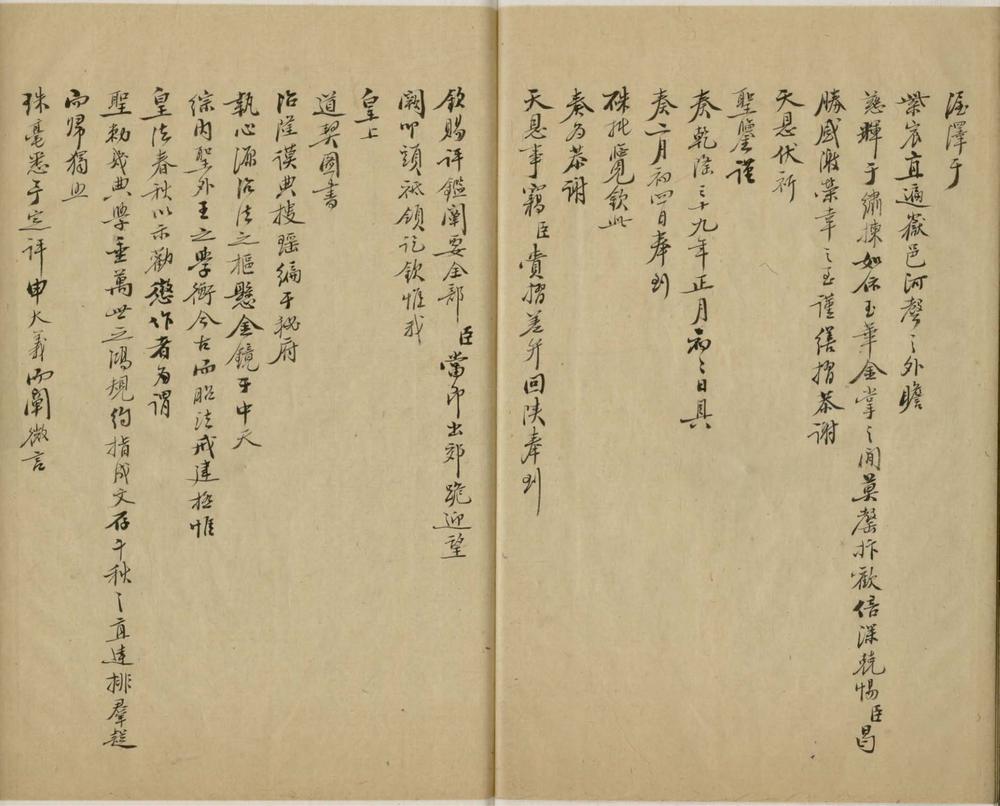 渥澤于
紫宸直遍嶽邑河聲之外瞻
慈輝于繡揀如依玉華金掌之間莫罄抃歡倍深兢惕臣曷
勝感激榮幸之至謹繕摺恭謝
天恩伏祈
聖鑒謹
奏乾隆三十九年正月初二日具
奏二月初四日奉到
硃批覽欽此
奏為恭謝
天恩事竊臣賫摺差弁回陝奉到
欽賜評鑑闡要全部臣當即出郊跪迎望
闕叩頭祗領訖欽惟我
皇上
道契圖書
治隆謨典搜瑶編于秘府
執心源治法之樞懸金鏡于中天
綜內聖外王之學衡今古而昭法戒建極惟
皇法春秋以示勸懲作者為謂
聖勅幾典學垂萬世之鴻規約指成文存千秋之直達排羣議
而歸獨
珠毫悉于定評申大義而闡微言